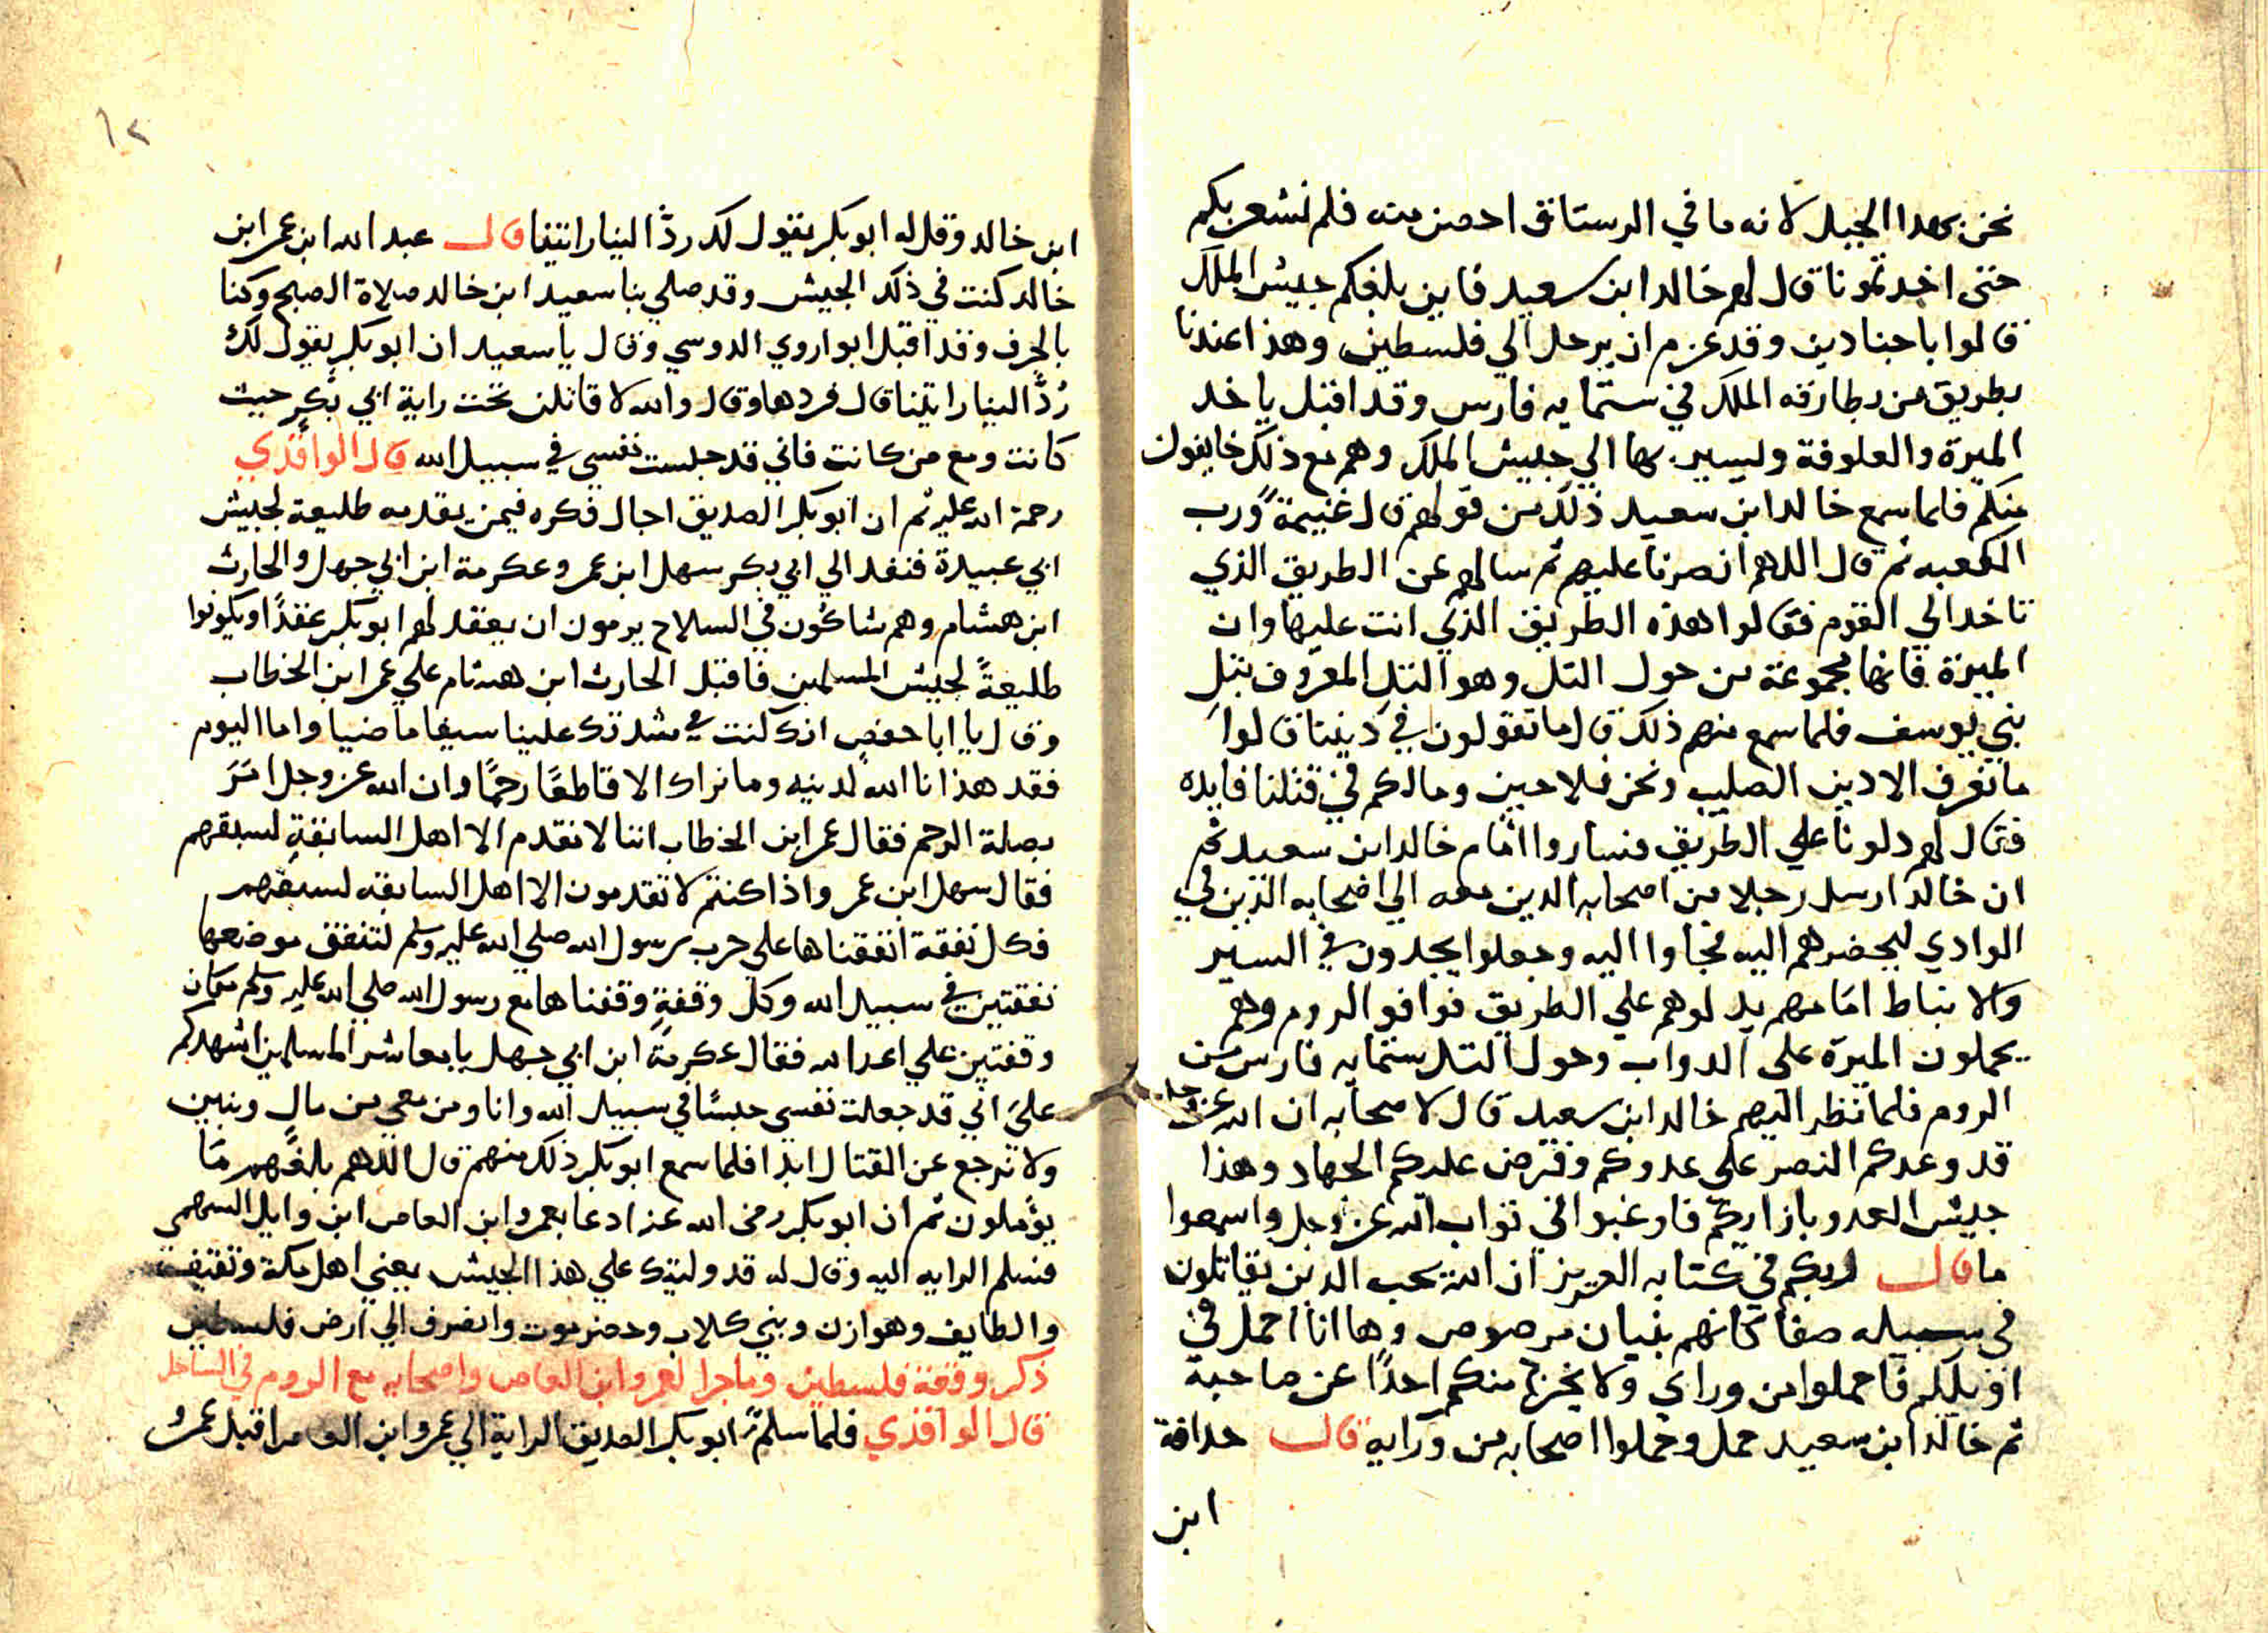 نحن بهدا الجبل لانه ما في الرستاق احصن منه فلم نشعر بكم
حتى اخدتمونا قال لهم خالد ابن سعيد فاين بلغكم جيش الملك
قالوا باجنادين وقد عزم ان يرحل الي فلسطين وهذا عندنا
بطريق من بطارقه الملك في ستمايه فارس وقد اقبل ياخد
الميرة والعلوفة وليسير بها الي جيش الملك وهم مع ذلك خايفون
منكم فلما سمع خالد ابن سعيد ذلك من قولهم قال غنيمةً ورب
الكعبه ثم قال اللهم انصرنا عليهم ثم سالهم عن الطريق الذي
تاخد الي القوم فقالوا هذه الطريق الذي انت عليها وان
الميرة فانها مجموعة من حول التل وهو التل المعروف بتل
بني يوسف فلما سمع منهم ذلك قال ما تقولون في ديننا قالوا
ما نعرف الا دين الصليب ونحن فلاحين ومالكم في قتلنا فايده
فقال لهم دلونا علي الطريق فساروا امام خالد ابن سعيد ثم
ان خالد ارسل رجلا من اصحابه الدين معه الي اصحابه الذين في
الوادي ليحضرهم اليه فجاوا اليه وجعلوا يجدون في السير
والانباط امامهم يدلوهم علي الطريق فوافو الروم وهم
يحملون الميرة على الدواب وحول التل ستمايه فارس من
الروم فلما نظر اليهم خالد ابن سعيد قال لاصحابه ان الله عز وجل
قد وعدكم النصر على عدوكم وفرض عليكم الجهاد وهذا
جيش العدو بازايكم فارغبوا في ثواب الله عز وجل واسمعوا
ما قال ربكم في كتابه العزيز ان الله يحب الدين يقاتلون
في سبيله صفا كانهم بنيان مرصوص وها انا احمل في
اويلكم فاحملوا من وراي ولا يخرج منكم احدًا عن صاحبه
ثم خالد ابن سعيد حمل وحملوا اصحابه من ورايه قال حدافة
ابن
١٢
ابن خالد وقل له ابو بكر يقول لك ردَّ الينا رايتنا قال عبد الله ابن عمر ابن
خالد كنت في ذلك الجيش وقد صلي بنا سعيد ابن خالد صلاة الصبح وكنا
بالجرف وقد اقبل ابو اروي الدوسي وقال يا سعيد ان ابو بكر يقول لك
رُدَّ الينا رايتنا قال فردها وقال والله لاقاتلن تحت راية ابي بكر حيث
كانت ومع من كانت فاني قد حبست نفسي في سبيل الله قال الواقدي
رحمة الله عليه ثم ان ابو بكر الصديق اجال فكره فيمن يقدمه طليعة لجيش
ابي عبيدة فنفد الي ابي بكر سهل ابن عمر وعكرمة ابن ابي جهل والحارث
ابن هشام وهم شاكون في السلاح يرمون ان يعقد لهم ابو بكر عقدًا ويكونوا
طليعةً لجيش المسلمين فاقبل الحارث ابن هشام علي عمر ابن الخطاب
وقال يا ابا حفص انك كنت في شدتك علينا سيفا ماضيا واما اليوم
فقد هذانا الله لدينه وما نراك الا قاطعًا رحمًا وان الله عز وجل امَرَ
بصلة الرحم فقال عمر ابن الخطاب اننا لا نقدم الا اهل السابقةِ لسبقهم
فقال سهل ابن عمر واذا كنتم لا تقدمون الا اهل السابقه لسبقهم
فكل نفقة انفقناها على حرب رسول الله صلي الله عليه وسلم لننفق موضعها
نفقتين في سبيل الله وكل وقفةٍ وقفناها مع رسول الله صلي الله عليه وسلم مكان
وقفتين علي اعدا الله فقال عكرمة ابن ابي جهل يا معاشر المسلمين اشهدكم
عليَ اني قد جعلت نفسي حبسًا في سبيل الله وانا ومن معي من مال وبنين
ولا نرجع عن القتال ابدا فلما سمع ابو بكر ذلك منهم قال اللهم بلغهم مَا
يؤملون ثم ان ابو بكر رضى الله عنه ادعا بعمرو ابن العاص ابن وايل السهمي
فسلم الرايه اليه وقال له قد وليتك علي هذا الجيش يعني اهل مكة وثقيف
والطايف وهوازن وبني كلاب وحضرموت وانصرف الي ارض فلسطين
ذكر وقفة فلسطين وما جرا لعمرو ابن العاص واصحابه مع الروم في الساحل
قال الواقدي فلما سلم ابو بكر الصديق الراية الي عمرو ابن العاص اقبل عمرُ